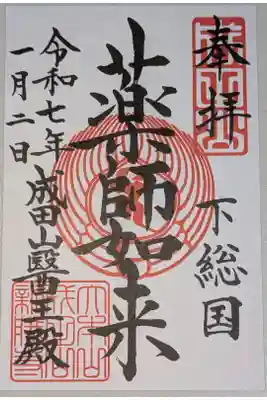 奉拝
下総国
薬師如来
令和七年
一月二日
成田山醫王殿